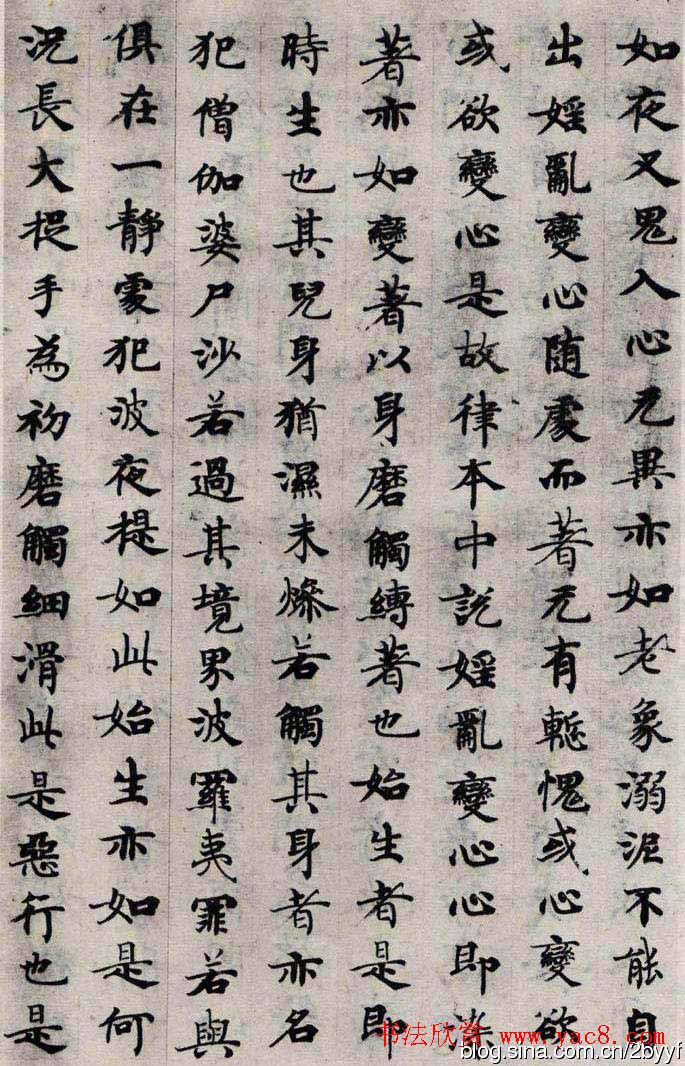 如夜叉鬼入心无異亦如老象溺泥不能自
出婬亂變心随處而著无有慙愧或心變欲
或欲變心是故律本中說婬亂變心心即染
著亦如變著以身磨觸縛著也始生者是即
時生也其兒身猶濕未燥若觸其身者亦名
犯僧伽婆尸沙若過其境界波羅夷罪若與
俱在一靜處犯波夜提如此始生亦如是何
況長大捉手為初磨觸細滑此是惡行也是
书法欣赏 www.yac8.com
blog.sina.com.cn/2byyf